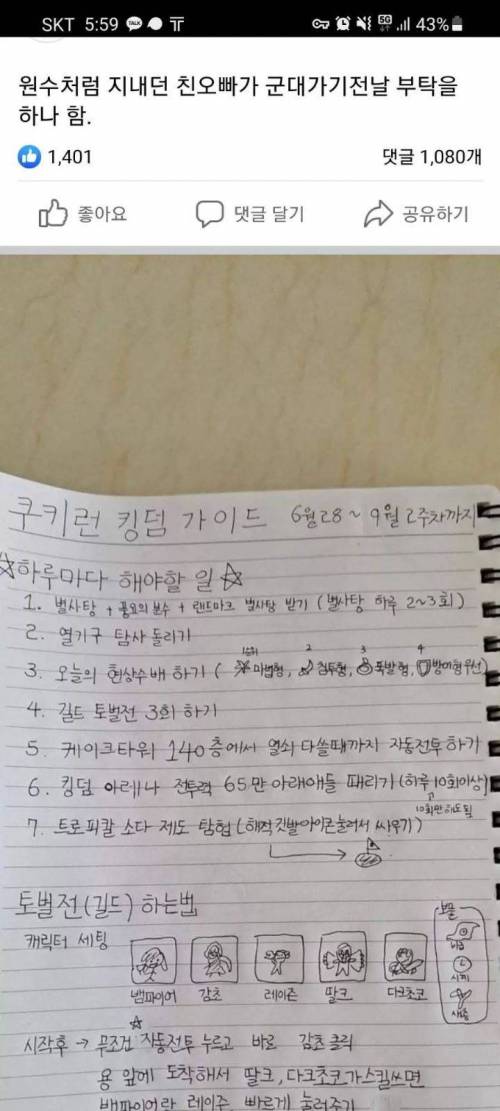 SKT 5:59 43%
원수처럼 지내던 친오빠가 군대가기전날 부탁을
하나 함.
1,401 댓글 1,080개
좋아요 댓글 달기 공유하기
쿠키런 킹덤 가이드 6월28~9월2주차까지
☆하루마다 해야할 일☆
1. 별사탕 + 풍요의 분수 + 랜드마크 별사탕 받기 (별사탕 하루 2~3회)
2. 열기구 탐사 돌리기
3. 오늘의 현상수배 하기 ( 1순위 마법형, 2 침투형, 3 폭발형, 4 방어형 우선)
4. 길드 토벌전 3회 하기
5. 케이크타워 140층에서 열쇠 다쓸때까지 자동전투 하기
6. 킹덤 아레나 전투력 65만 아래애들 때리기 (하루 10회이상)
10회만해도됨
7. 트로피칼 소다 제도 탐험 (해적깃발아이콘눌러서 싸우기)
토벌전(길드) 하는법
보물
캐릭터 세팅
뱀파이어 감초 레이즌 딸크 다크초코
시작후 → 무조건 자동전투 누르고 바로 감초클릭
용 앞에 도착해서 딸크, 다크초코가스킬쓰면
뱀파이어랑 레이즌 빠르게 눌러주기